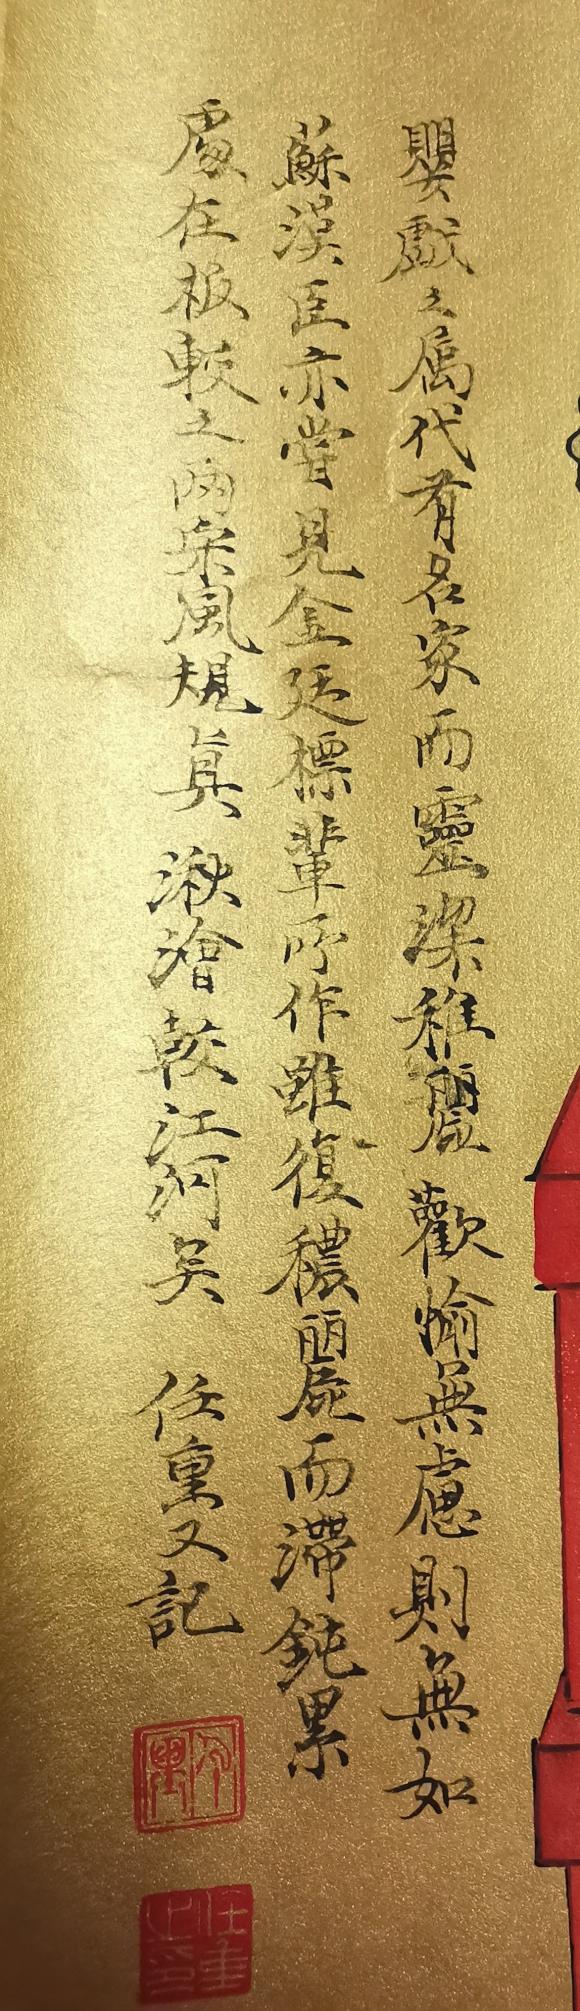 嬰戲之属代有名家而靈潔稚麗歡愉無慮則無如
蘇漢臣亦嘗見金廷標輩所作雖復穠麗而滯鈍累
處在板較之兩宋風規真湫澮較江河矣 任重又記
任重
任重之印